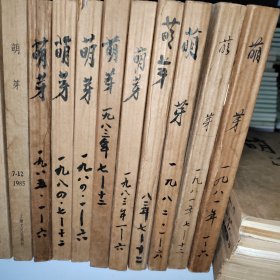 萌芽
7-12
1985
萌芽
一九八五.一—六
萌芽
一九八四.七—十二
萌芽
一九八四.一—六
萌芽
一九八三年七—十二
萌芽
一九八三年一—六
萌芽
一九八二.一—六
萌芽
一九八一年七—十二
萌芽
一九八一年一—六